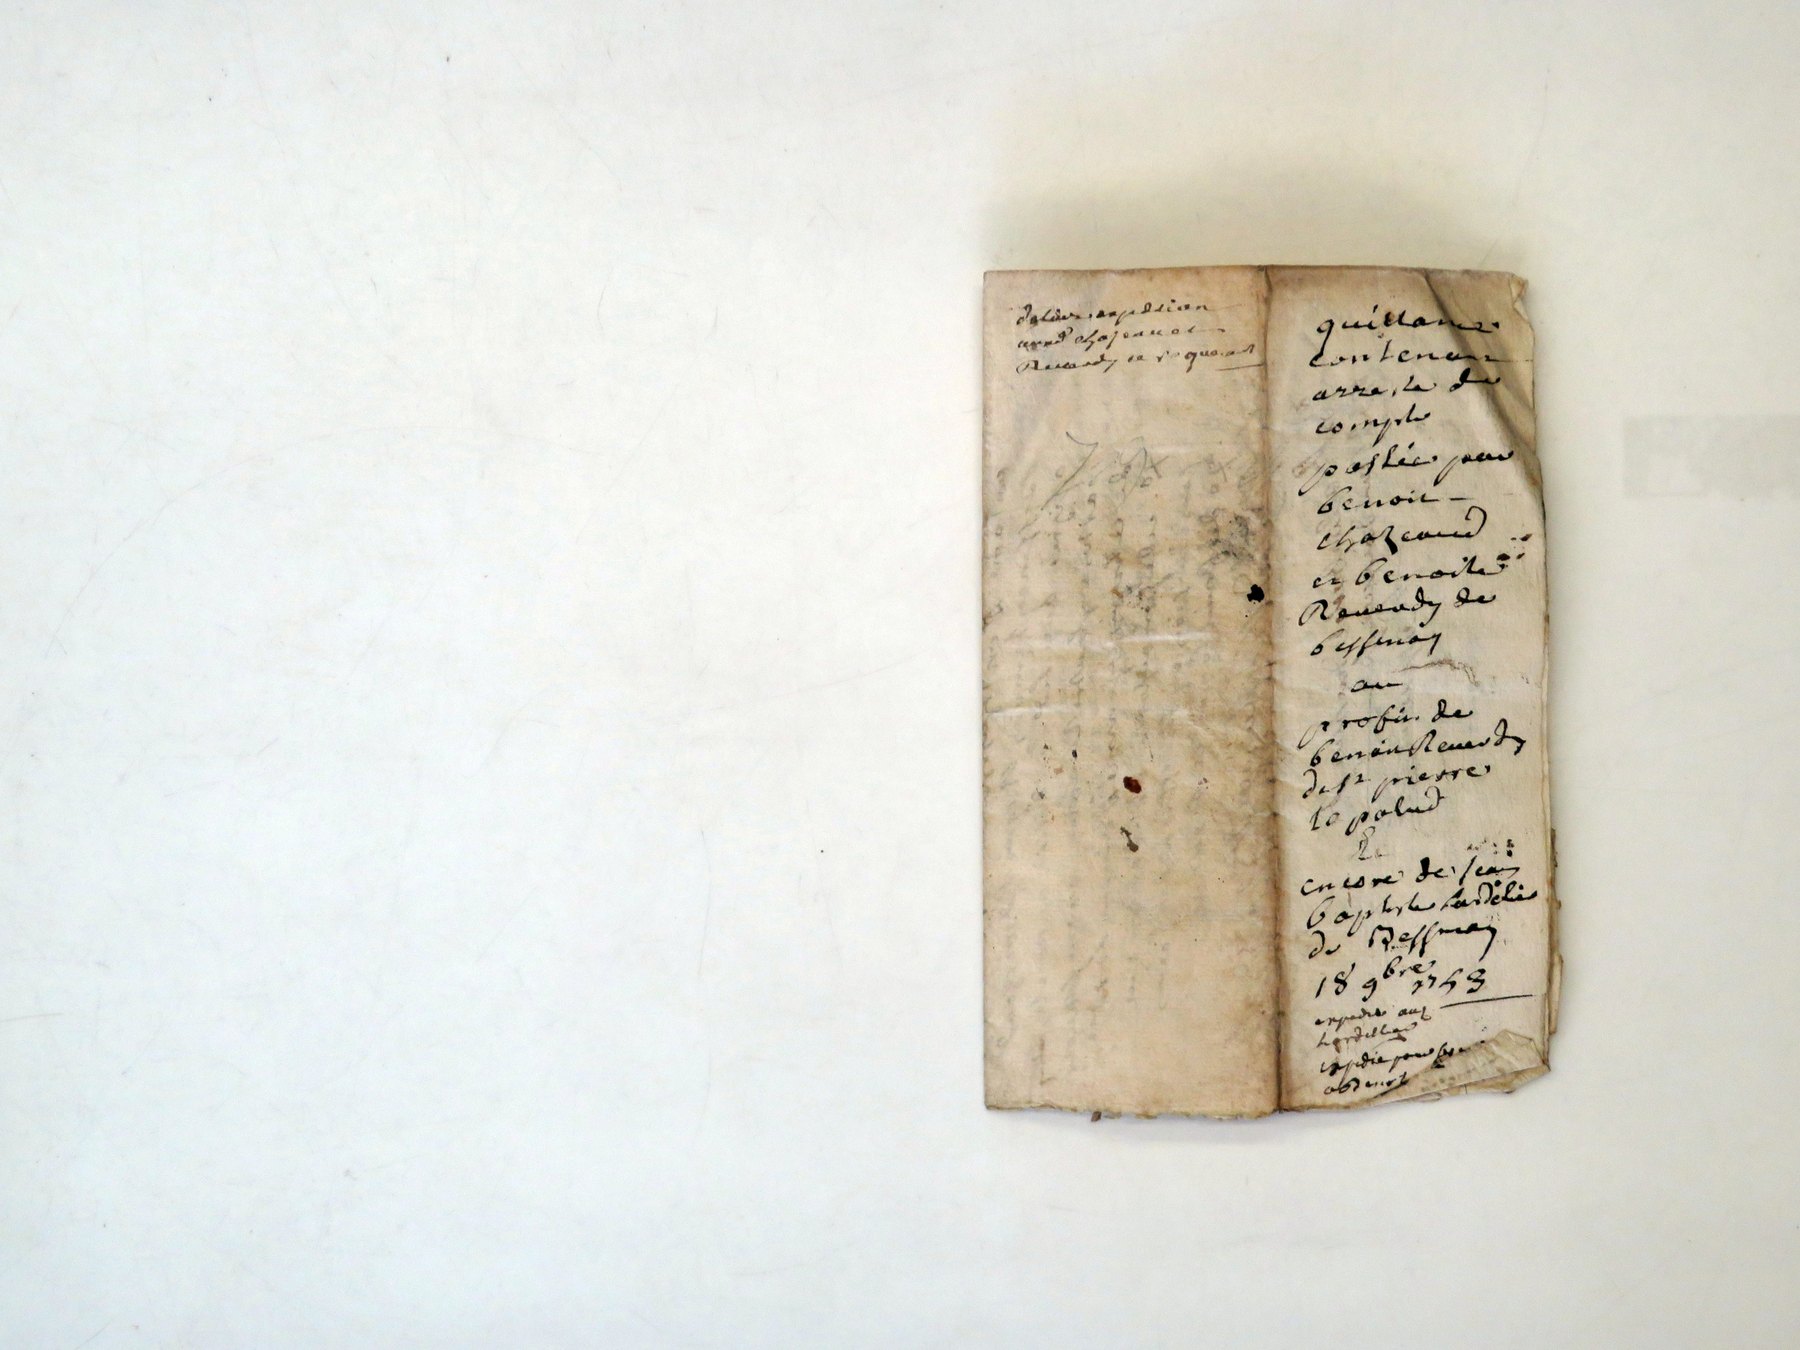 delivré expedition
aud chazeaud et
Reverdy ce requerant
quittance
contenant
arreste de
compte
passée par
benoit -
chazeaud
et benoite
Reverdy de
bessenay
au
profit de
benoit Reverdy
de st pierre
la palud
Et
encore de Jean
baptiste
de Bessenay
18 9bre 1753
expedié aux
expedié pour